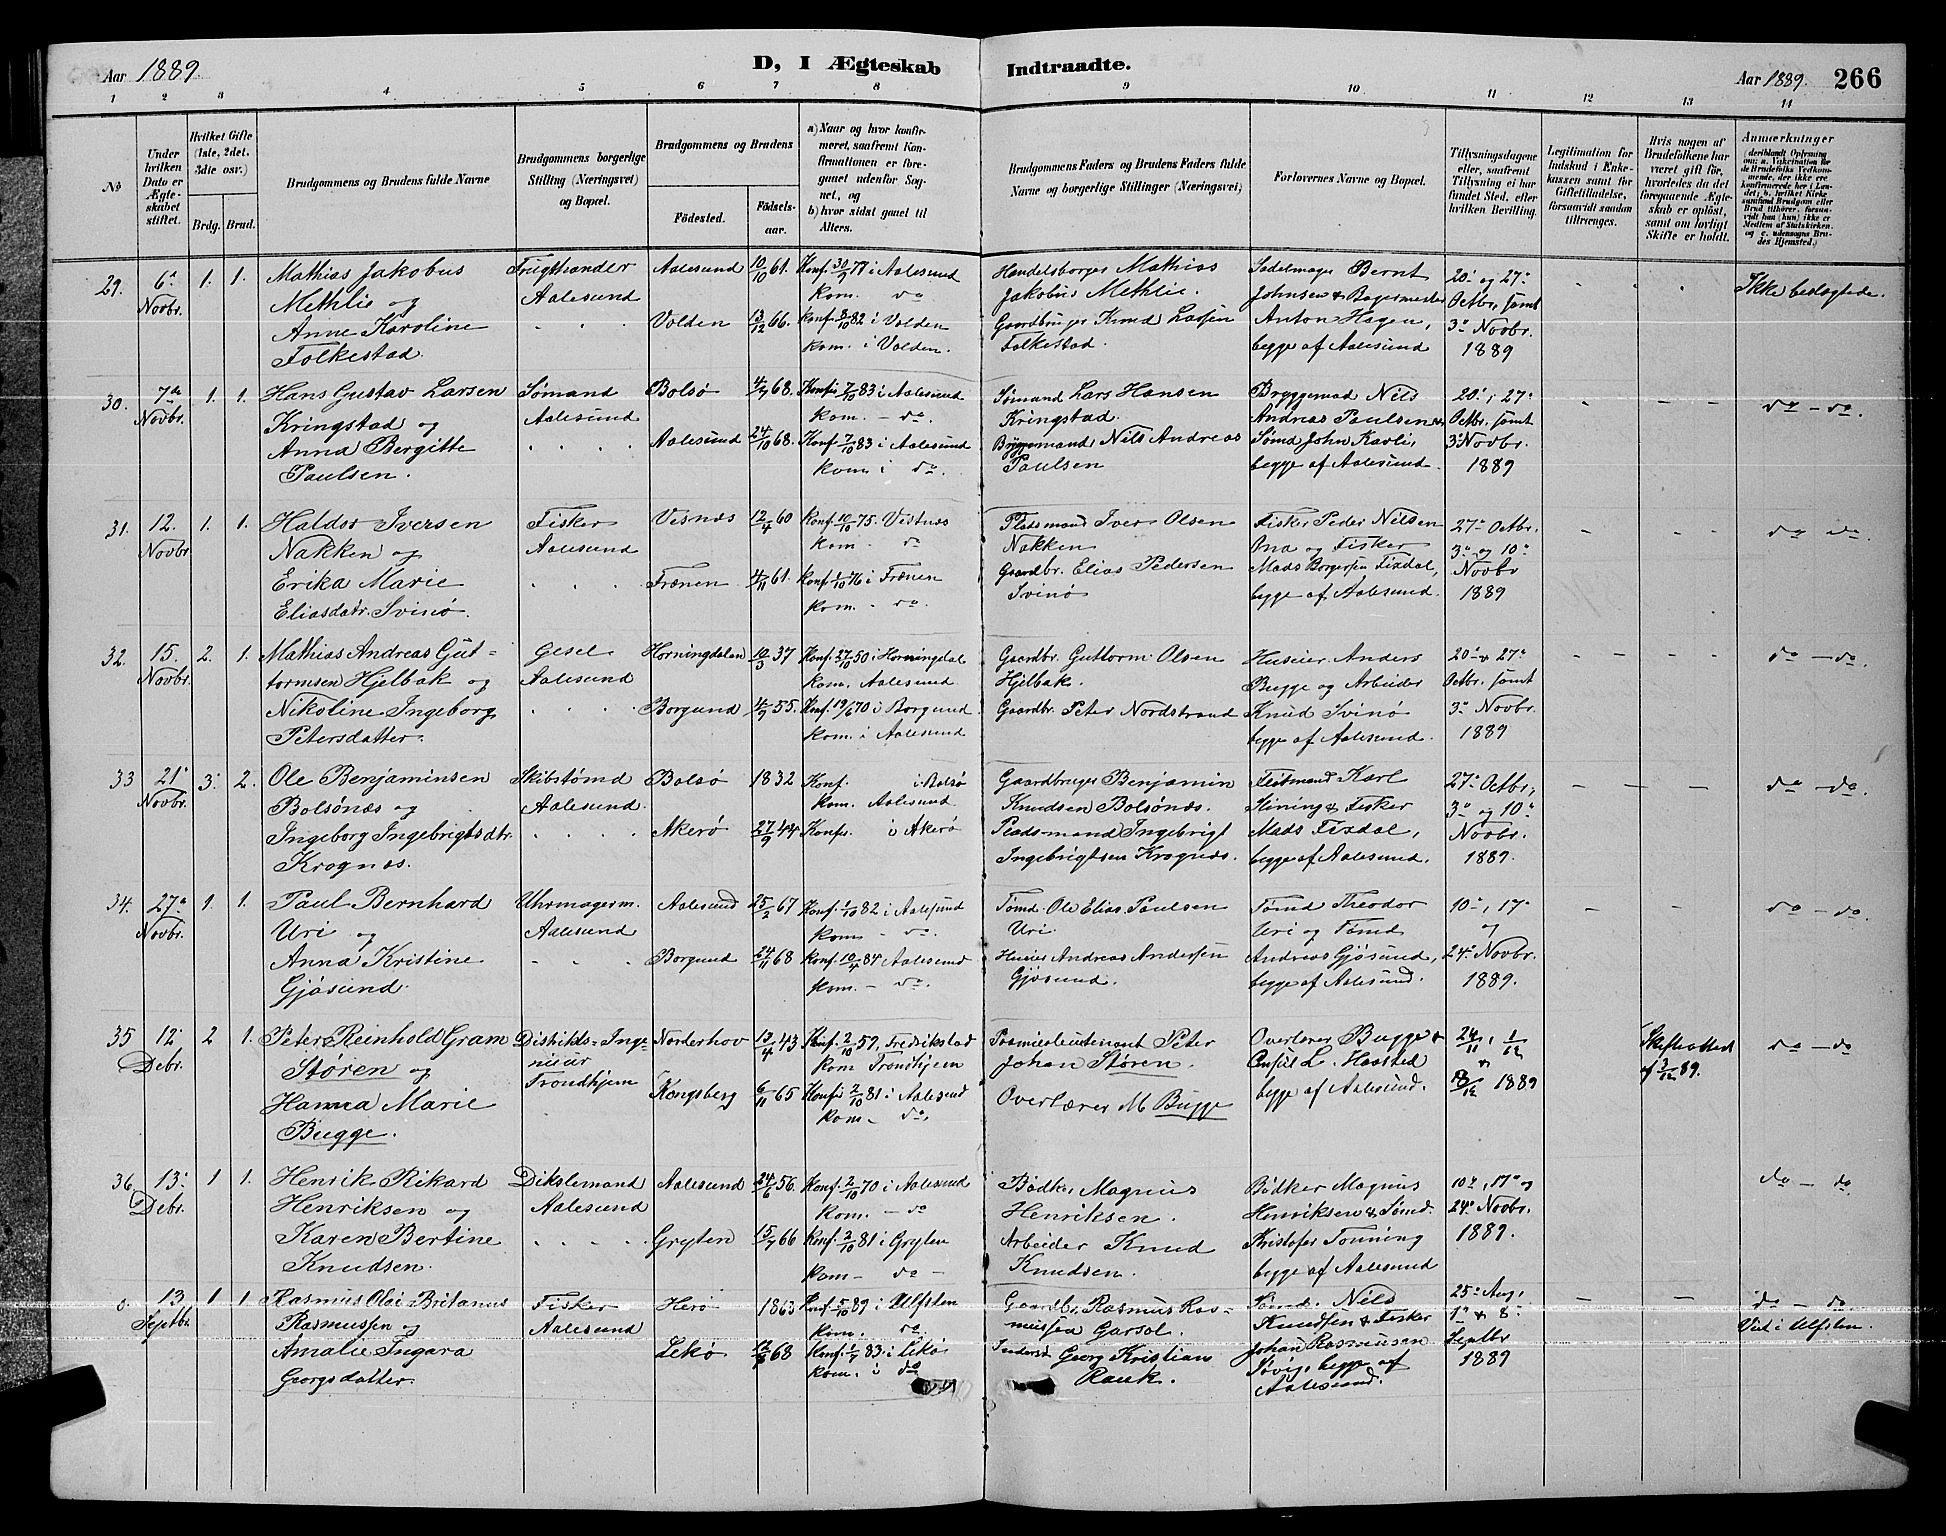 Aar 1889
D, I Ægteskab Indtraadte.
Aar 1889. 266
1 2 3 4 5 6 7 8 9 10 11 12 13 14
No
Under hvilken Dato er Ægteskabet stiftet.
Hvilket Gifte (1ste, 2det, 3die osv.)
Brdg. Brud.
Brudgommens og Brudens fulde Navne
Brudgommens borgerlige Stilling (Næringsvei) og Bopæl.
Brudgommens og Brudens
Fødested.
Fødselsaar.
a) Naar og hvor konfirmeret, saafremt Konfirmationen er foregaaet udenfor Sognet, og
b) hvor sidst gaaet til Alters.
Brudgommens Faders og Brudens Faders fulde Navne og borgerlige Stillinger (Næringsvei)
Forlovernes Navne og Bopæl.
Tillysningsdagene eller, saafremt Tillysning ei har fundet Sted, efter hvilken Bevilling.
Legitimation for Indskud i Enkekassen samt for Giftetilladelse, forsaavidt saadan tiltrænges.
Hvis nogen af Brudefolkene har været gift før, hvorledes da det foregaaende Ægteskab er opløst, samt om lovligt Skifte er holdt.
Anmærkninger
29. 6' Novbr. 1. 1.
Mathias Jakobus
Methlie og
Anne Karoline
Folkestad.
Frugthandler
Aalesund
Aalesund 10/10 61.
Volden 13/12 66.
Konf. 30/9 77 i Aalesund
kom. do
Konf. 8/10 82 i Volden
kom. i Volden.
Handelsborger Mathias
Jakobus Methlie.
Gaardbruger Knud Larsen
Folkestad.
Sadelmager Bernt
Johnsen & Bagermester
Anton Hagen,
begge af Aalesund
20' og 27'
Octbr. samt
3' Novbr.
1889
Ikke beslægtede.
30. 7de Novbr. 1. 1.
Hans Gustav Larsen
Kringstad og
Anna Bergitte
Paulsen.
Sømand
Aalesund
Bolsø 4/7 68.
Aalesund 24/10 68.
Konf. 7/10 83 i Aalesund
kom. – do
Konf. 7/10 83 i Aalesund
kom i do.
Sømand Lars Hansen
Kringstad.
Bryggemand Nils Andreas
Paulsen
Bryggemand Nils
Andreas Paulsen &
Sømd John Kavli,
begge af Aalesund.
20', 27'
Octbr. samt
3' Novbr.
1889
do – do.
31. 12. Novbr 1. 1.
Haldor Iversen
Nakken og
Erika Marie
Eliasdatr. Svinø.
Fisker
Aalesund
Vesnæs 12/4 60
Frænen 4/11 61.
Konf. 10/10 75. Vestnæs
kom. do
Konf. 1/10 76 i Frænen
kom. – do.
Pladsmand Iver Olsen
Nakken
Gaardbr. Elias Pedersen
Svinø
Fisker Peder Nilsen
Ona og Fisker
Mads Borgersen Fixdal,
begge af Aalesund.
27' Octbr.
3' og 10'
Novbr
1889
do do.
32. 15. Novbr. 2. 1.
Mathias Andreas Gut-
tormsen Hjelbak og
Nikoline Ingeborg
Petersdatter.
Gesel
Aalesund
Horningdalen 10/3 37
Borgund 4/9 55.
Konf. 27/10 50 i Horningdal
kom. Aalesund
Konf. 19/6 70 i Borgund
kom. i Aalesund
Gaardbr. Guttorm Olsen
Hjelbak.
Gaardbr. Peter Nordstrand
Huseier Anders
Bugge og Arbeider
Knud Svinø
begge af Aalesund.
20' & 27'
Octbr. samt
3' Novbr.
1889
do – do.
33 21' Novbr. 3. 2.
Ole Benjaminsen
Bolsønæs og
Ingeborg Ingebrigtsdtr.
Krognæs.
Skibstømd
Aalesund.
Bolsø 1832
Akerø 27/9 44
Konf. i Bolsø
kom. Aalesund
Konfr. i Akerø
Gaardbruger Benjamin
Knudsen Bolsønæs.
Pladsmand Ingebrigt
Ingebrigtsen Krognæs.
Karl
& Fisker
Mads Fixdal,
begge af Aalesund.
27' Octbr,
3' og 10'
Novbr.
1889.
do – do.
34. 27' Novbr. 1. 1.
Paul Bernhard
Uri og
Anna Kristine
Gjøsund.
Uhrmagerm.
Aalesund
Aalesund 25/2 67
Borgund 24/11 68
Konf. 1/10 82 i Aalesund
kom – do.
Konf. 10/4 84 i Aalesund
kom. – do.
Tømd. Ole Elias Paulsen
Uri.
Huseier Andreas Andersen
Gjøsund.
Tømd Theodor
Uri og Tømd
Andreas Gjøsund,
begge af Aalesund.
10', 17'
og
24' Novbr.
1889.
do – do.
35 12' Debr. 2 1.
Peter Reinhold Gram
Støren og
Hanna Marie
Bugge.
Distrikts-Inge-
niør
Trondhjem
Norderhov 13/4 43
Kongsberg 6/11 65
Konf. 2/10 59, Fredrikstad
kom Tronhjem
Konf. 2/10 81 i Aalesund
kom – do.
Premierlieutenant Peter
Johan Støren.
Overlærer M Bugge
Overlærer Bugge &
Consul L. Haasted
begge af Aalesund.
24/11, 1/12
&
8/12 1889
Skifteattest
af 3/12 89.
do – do
36. 13' Debr. 1 1.
Henrik Rikard
Henriksen og
Karen Bertine
Knudsen.
Dikslemand
Aalesund
Aalesund 24/6 56.
Gryten 15/7 66
Konf. 2/10 70 i Aalesund
kom. – do
Konf. 2/10 81 i Gryten
kom – do –
Bødker Magnus
Henriksen.
Arbeider Knud
Knudsen.
Bødker Magnus
Henriksen & Sømd.
Kristofer Tønning
begge af Aalesund
10', 17' og
24' Novbr.
1889.
do – do.
0. 13 Septbr. 1 1.
Rasmus Olai Britanus
Rasmussen og
Amalie Ingara
Georgsdatter.
Fisker
Aalesund
Herø 1863
Lekø 68
Konf. 5/10 89 i Ulfsten
kom. do.
Konf. 1/7 83 i Lekø
kom. i do
Gaardbr. Rasmus Ras-
mussen Garsol.
Georg Kristian
Rauk.
Sømd. Nils
Knudsen & Fisker
Johan Rasmussen
Søvig, begge af
Aalesund.
25' Aug,
1' & 8'
Septbr
1889
do – do
Viet i Ulfsten.